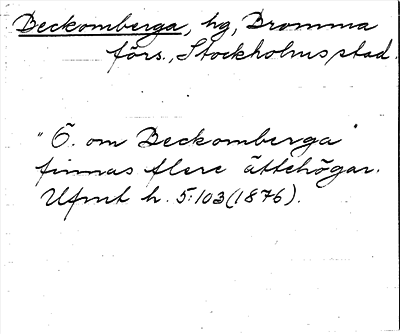 Beckomberga, hg, Bromma
förs., Stockholms stad.
"Ö. om Beckomberga"
finnas flere ättehögar.
Ufmt h. 5:103 (1876).